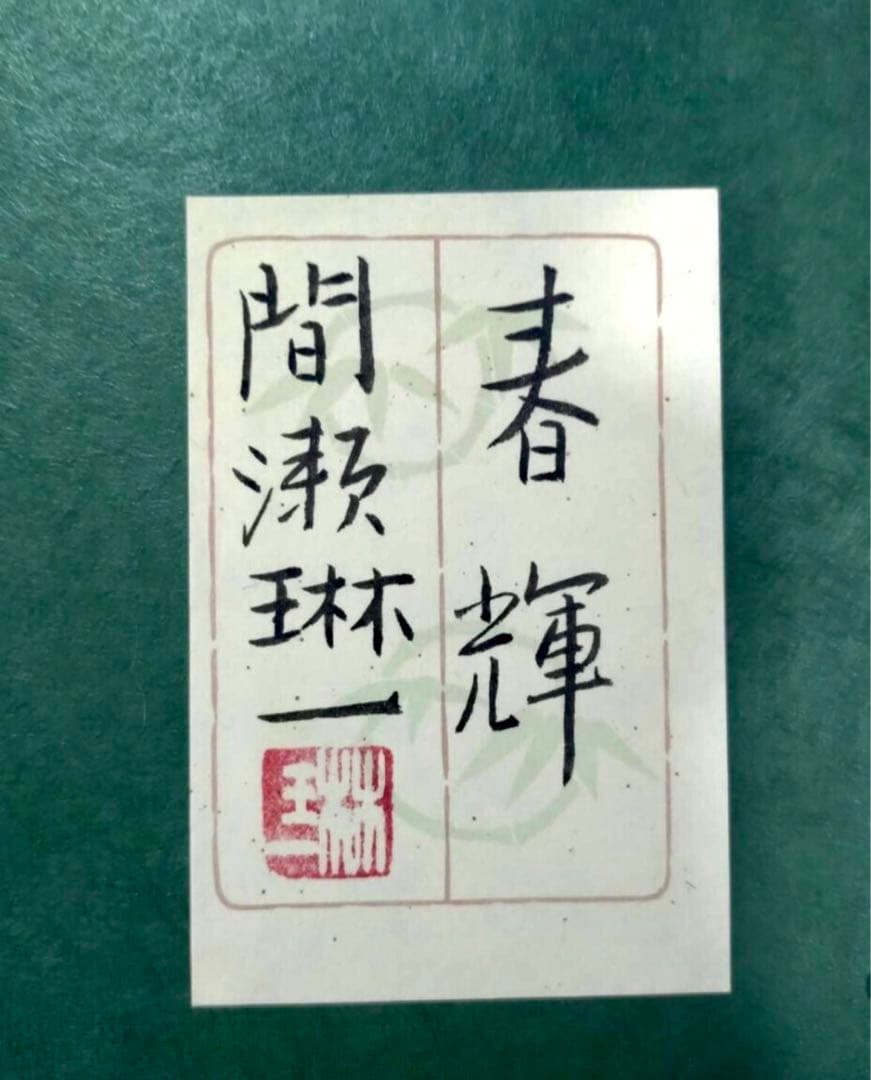 春輝
間瀬琳一
琳一